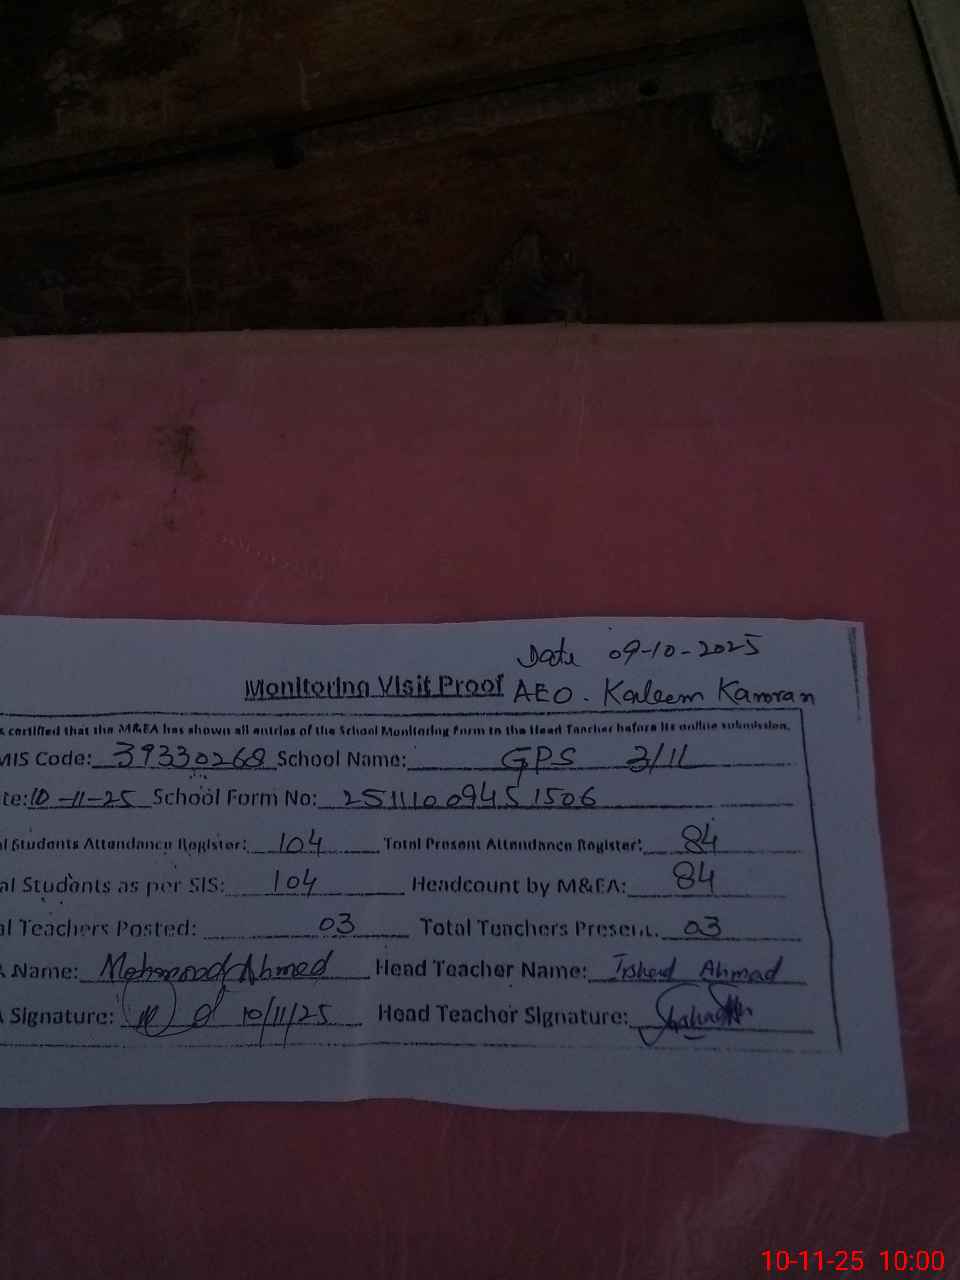 Date 09-10-2025
Monitoring Visit Proof AEO. Kaleem Kamran
certified that the M&EA has shown all entries of the School Monitoring Form to the Head Teacher before its online submission.
MIS Code: 39330268 School Name: GPS 3/1L
te: 10-11-25 School Form No: 25111009451506
l Students Attendance Register: 104 Total Present Attendance Register: 84
al Students as per SIS: 104 Headcount by M&EA: 84
al Teachers Posted: 03 Total Teachers Present: 03
Name: Mehmood Ahmed Head Teacher Name: Irshad Ahmad
Signature: 10/11/25 Head Teacher Signature:
10-11-25 10:00